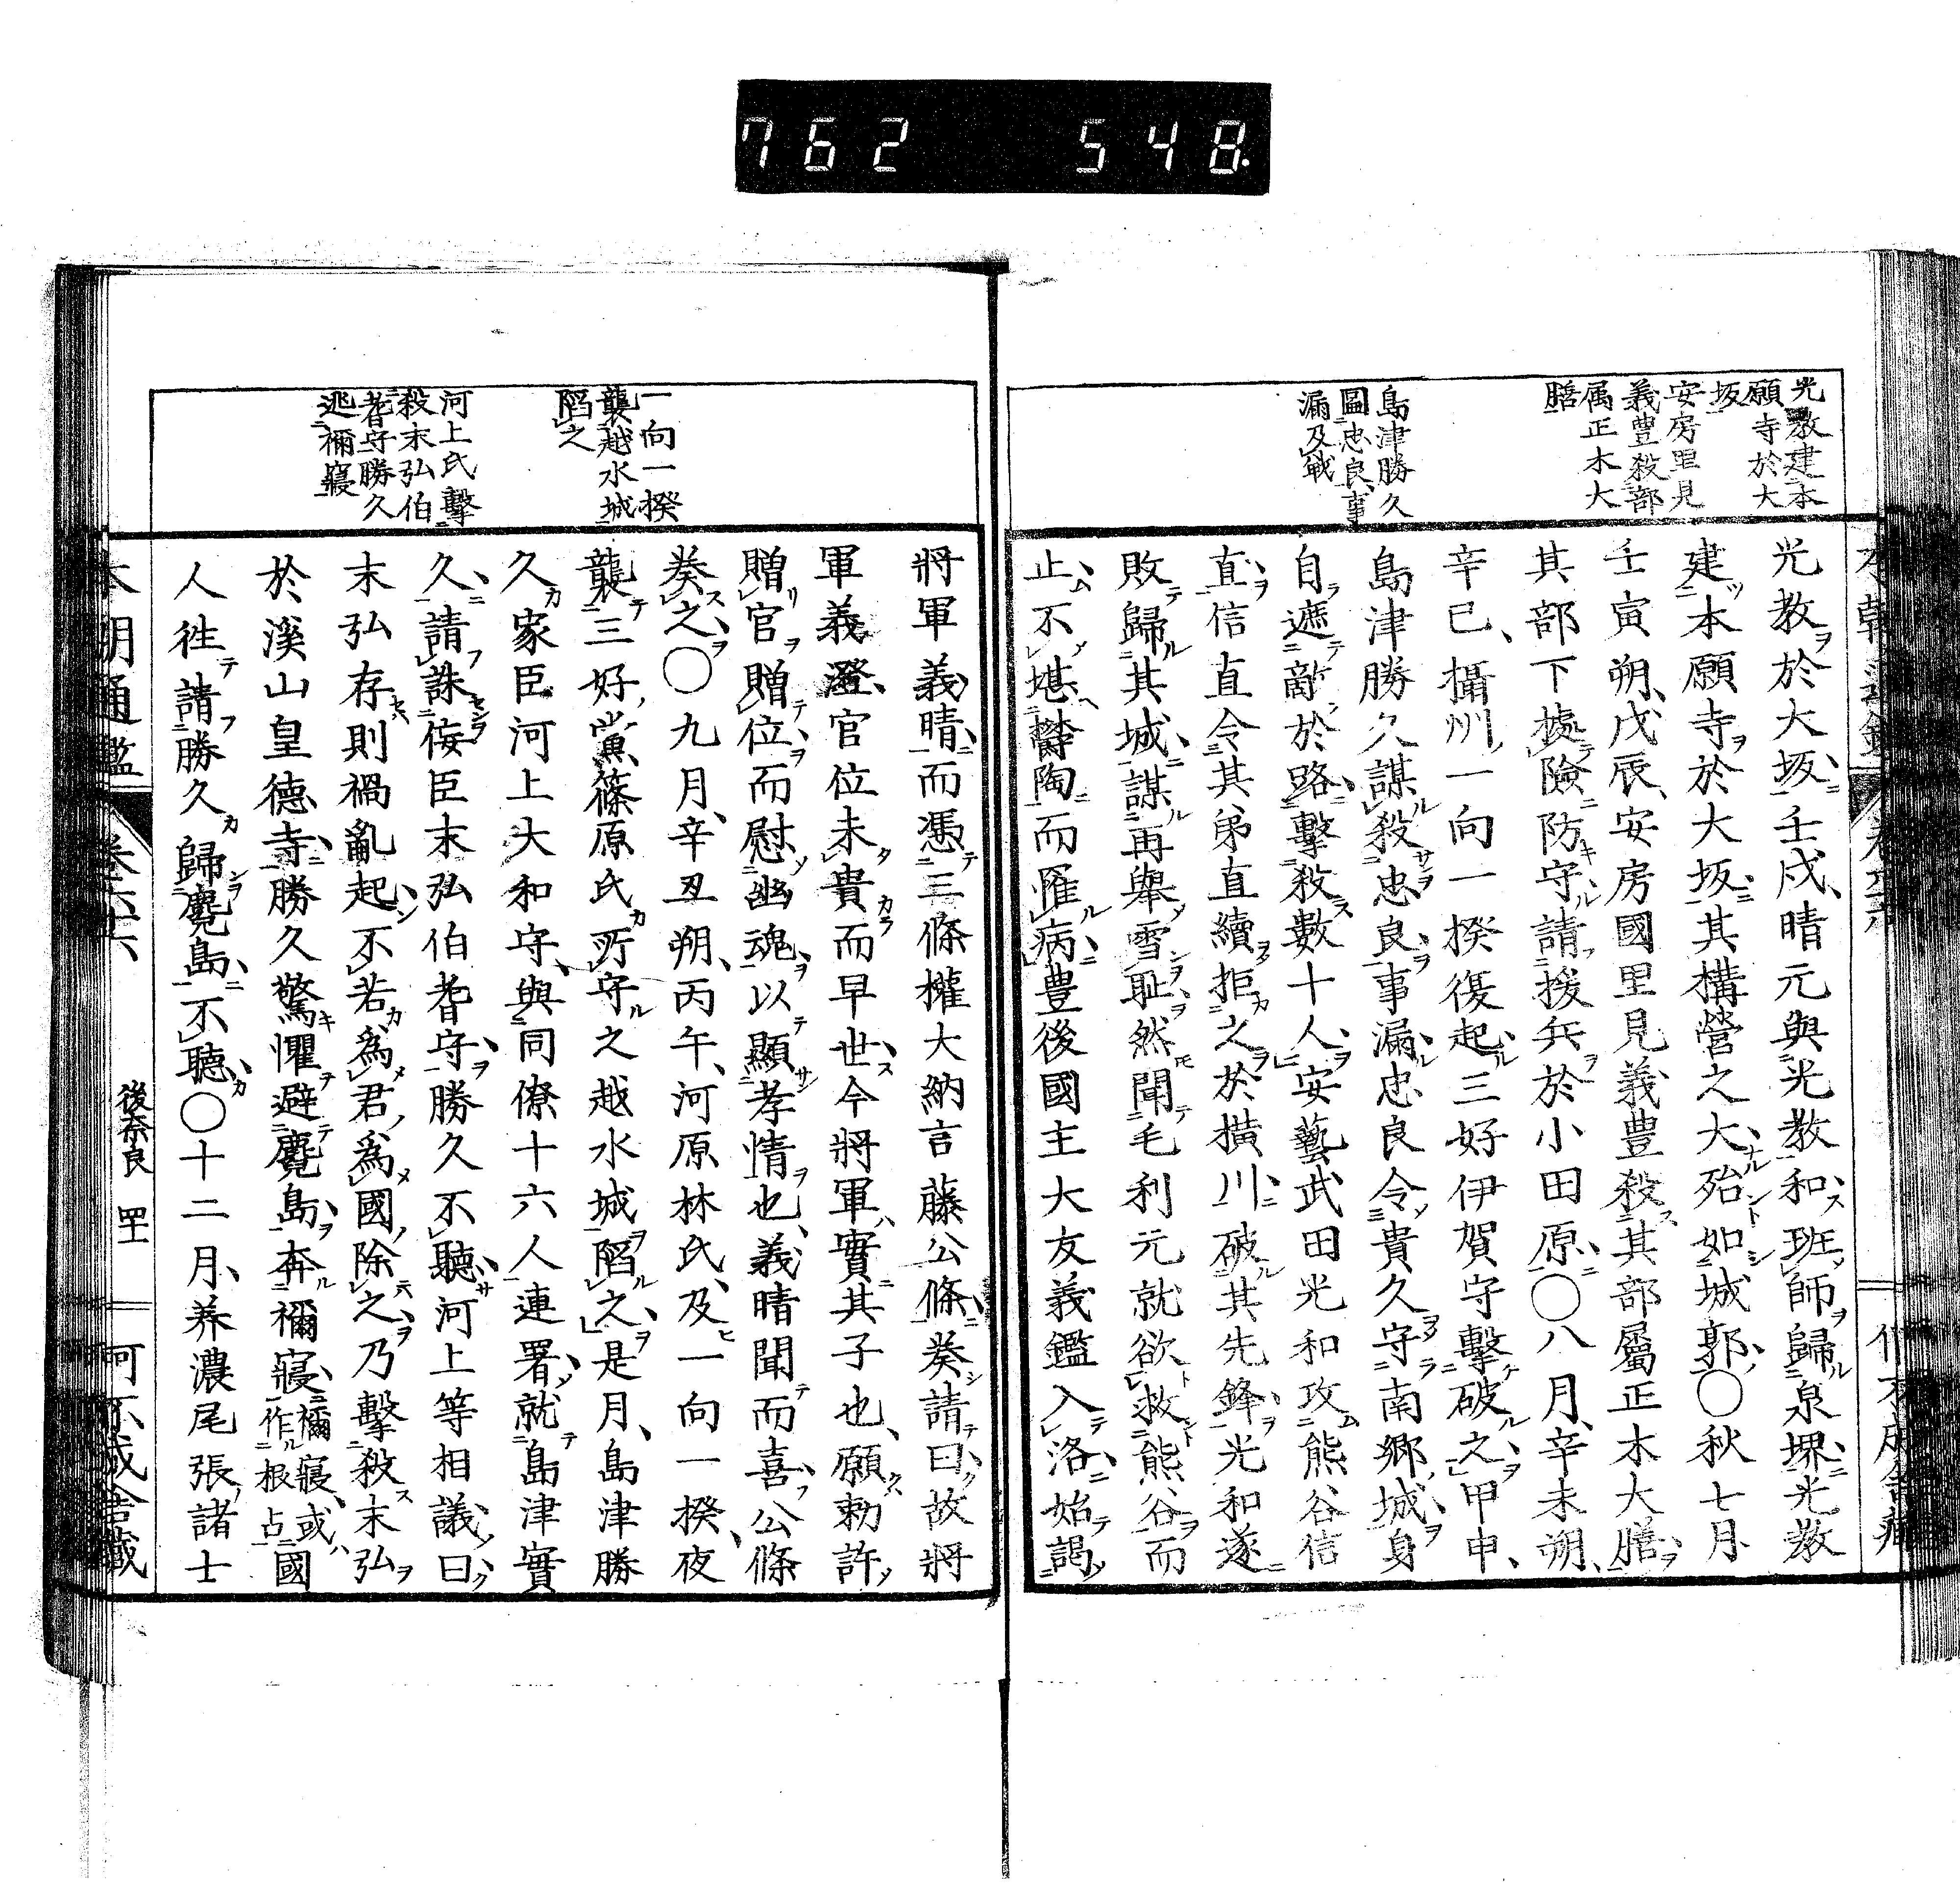 762 548
光教建本
願寺於大
坂
安房里見
義豊殺部
属正木大
膳
島津勝久
圖忠良事
漏及戰
光教於大坂壬戌晴元與光教和班師歸泉堺光教
建本願寺於大坂其構營之大殆如城郭〇秋七月
壬寅朔戊辰安房國里見義豊殺其部屬正木大膳
其部下據險防守請援兵於小田原〇八月辛未朔
辛巳攝州一向一揆復起三好伊賀守擊破之甲申
島津勝久謀殺忠良事漏忠良令貴久守南郷城身
自遮敵於路擊殺數十人安藝武田光和攻熊谷信
直信直令其弟直續拒之於横川破其先鋒光和遂
敗歸其城謀再舉雪耻然聞毛利元就欲救熊谷而
止不堪欝陶而罹病豊後國主大友義鑑入洛始謁
一向一揆
襲越水城
陷之
河上氏擊
殺末弘伯
耆守勝久
逃禰寢
將軍義晴而憑三條權大納言藤公條奏請曰故將
軍義澄官位未貴而早世今將軍實其子也願勅許
贈官贈位而慰幽魂以顯孝情也義晴聞而喜公條
奏之〇九月辛丑朔丙午河原林氏及一向一揆夜
襲三好黨篠原氏所守之越水城陷之是月島津勝
久家臣河上大和守與同僚十六人連署就島津實
久請誅侫臣末弘伯耆守勝久不聽河上等相議曰
末弘存則禍亂起不若爲君爲國除之乃擊殺末弘
於溪山皇德寺勝久驚懼避麑島奔禰寢禰寢或作根占國
人往請勝久歸麑島不聽〇十二月美濃尾張諸士
本朝通鑑 卷六十六 後奈良 四十